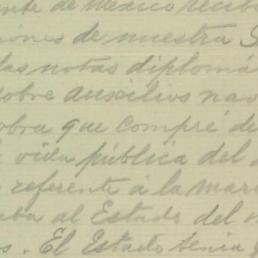 nte de México recibi
ones de nuestra S
las notas diplomá
sobre auxilios nav
obra que compré de
vida pública del
referente á la mari
aba al Estado del
s. El Estado tenia